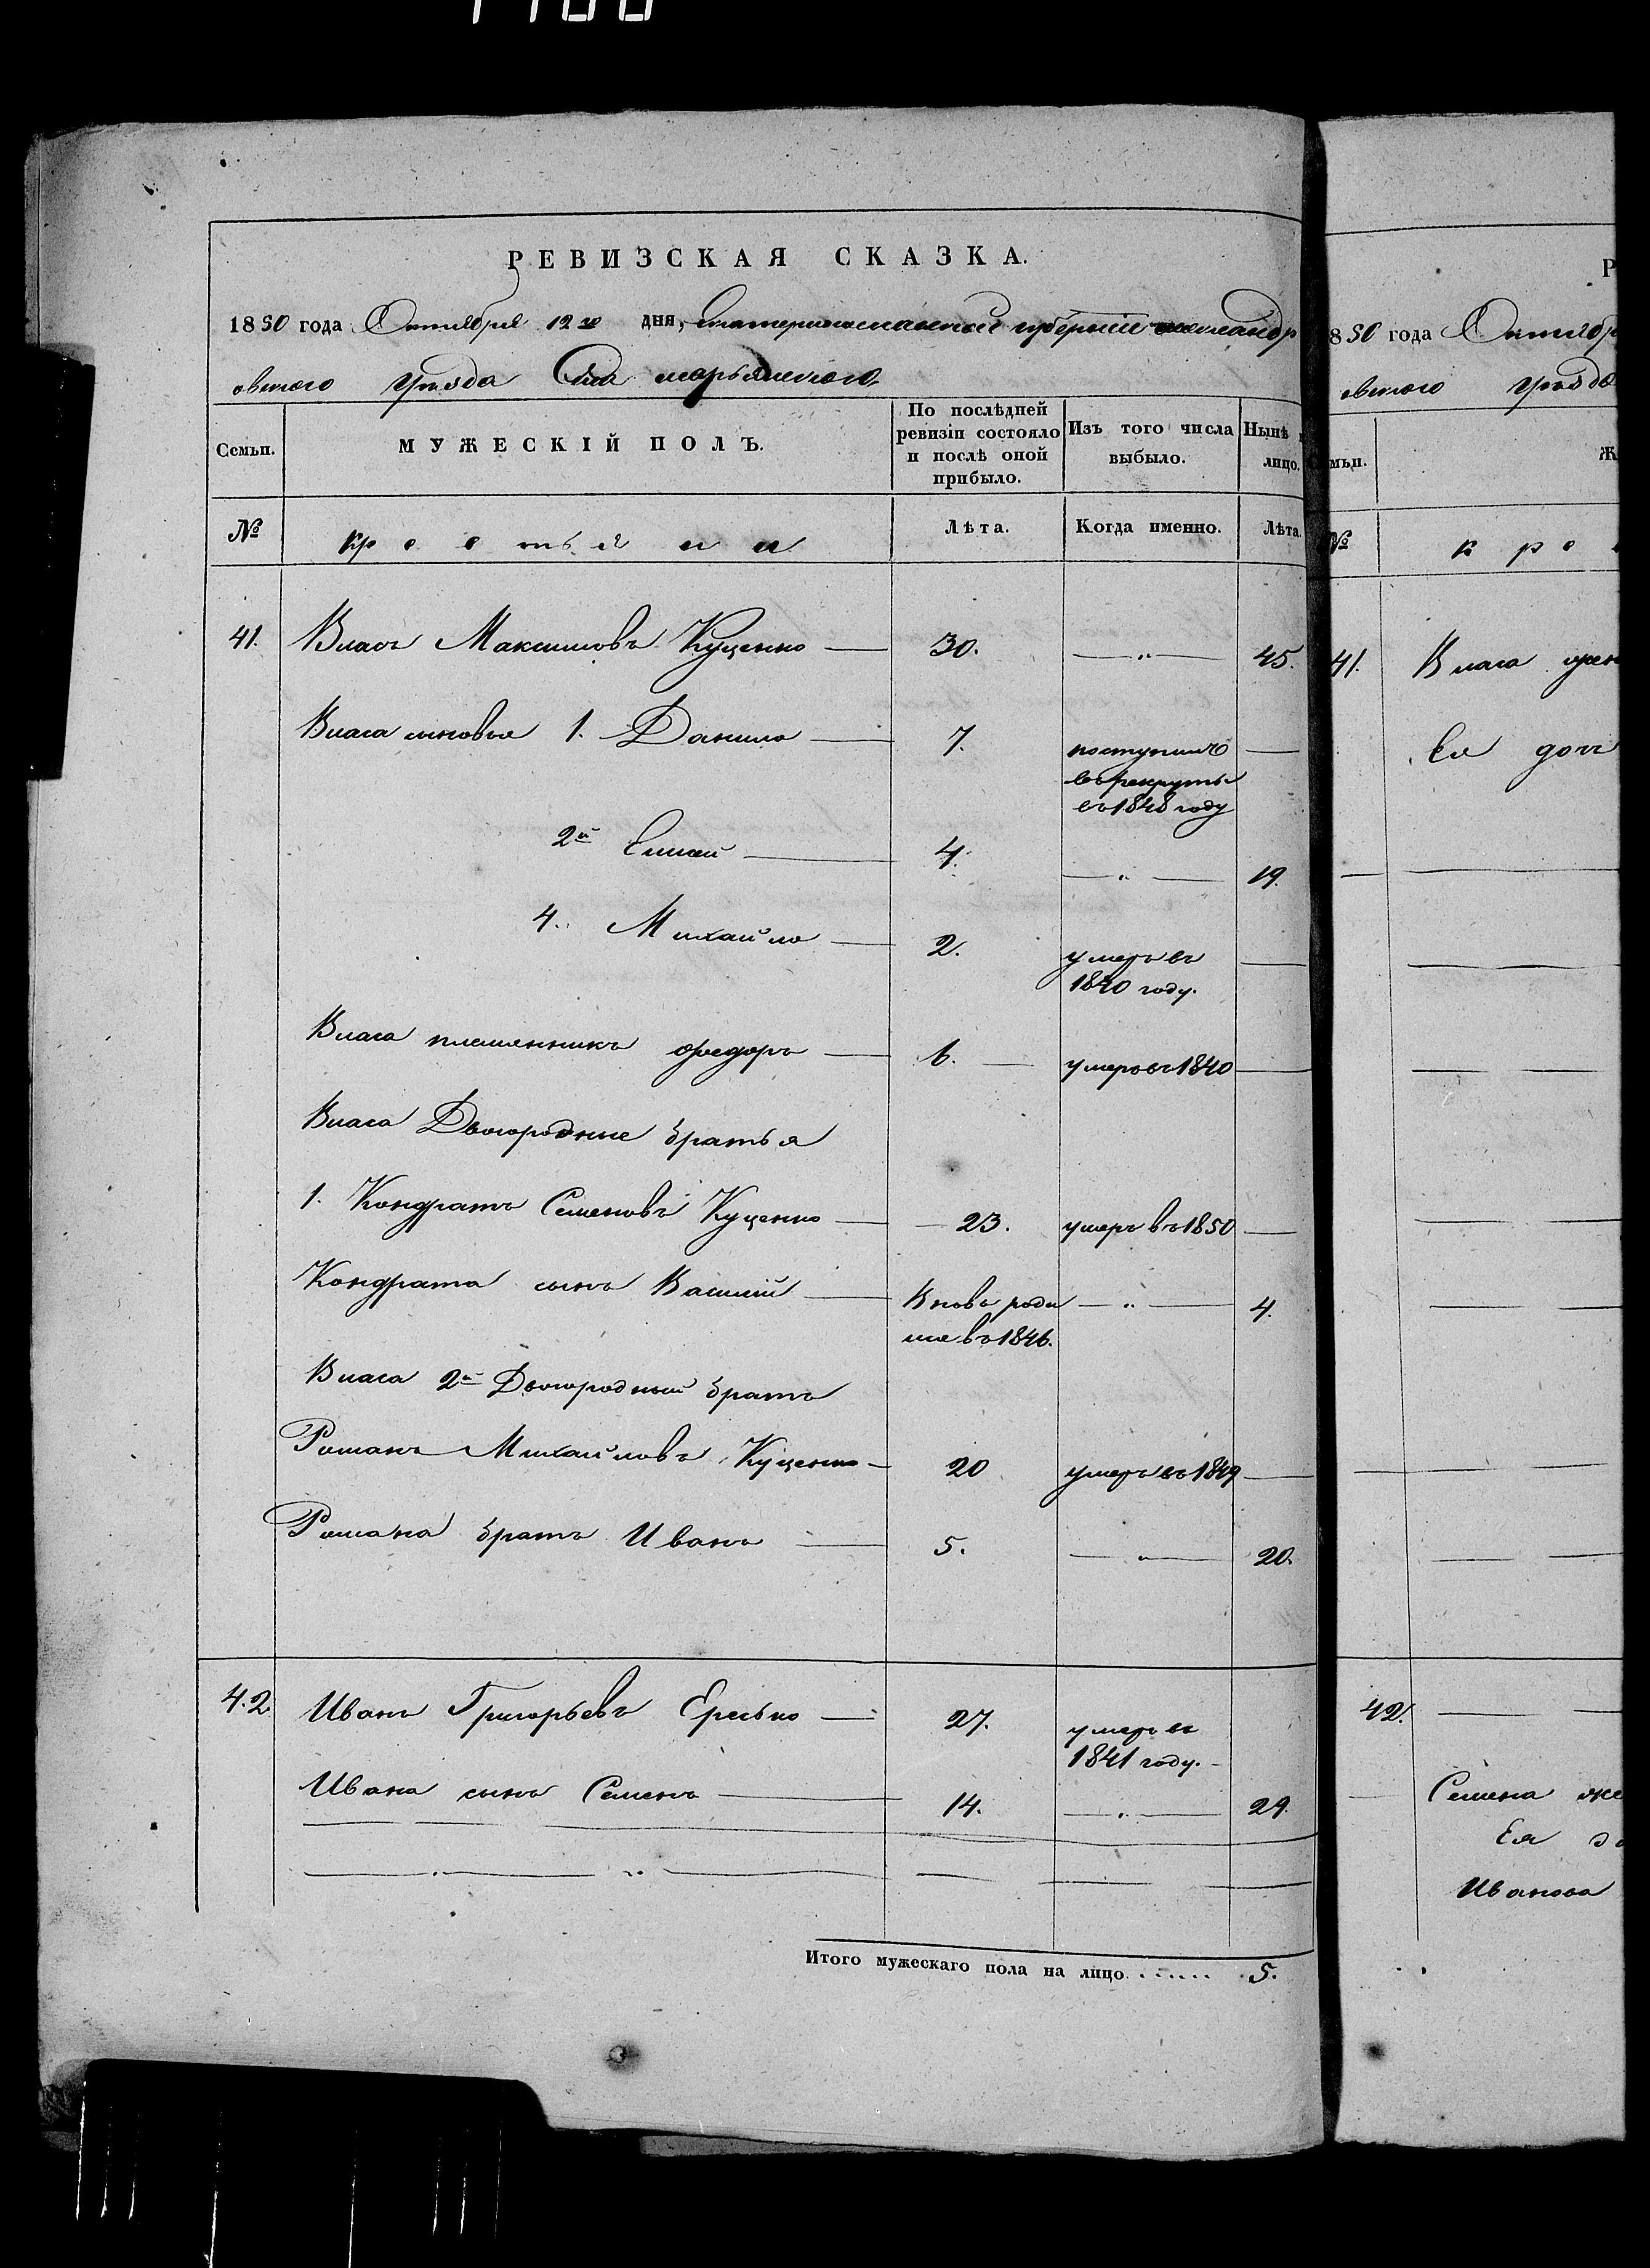 РЕВИЗСКАЯ СКАЗКА.
1850 года Октября 12го дня, Екатеринославской губернии Александр
овского уезда Села марьянского
Семьи.
МУЖЕСКІЙ ПОЛЪ.
По послѣдней
ревизіи состояло
и послѣ оной
прибыло.
Изъ того числа
выбыло.
Нынѣ
лицо.
№
крестьяни
Лѣта.
Когда именно.
Лѣта.
41. Власъ Максимовъ Куценко — 30. — „ — 45.
Власа сыновья 1. Данило — 7. поступилъ —
въ рекруты
въ 1848 году
2й Елисей — 4. — „ — 19.
4. Михайло — 2. умеръ въ —
1840 году.
Власа племянникъ Ѳедоръ — 6. — умеръ въ 1840 —
Власа Двоюродные братья
1. Кондратъ Семеновъ Куценко — 23. умеръ въ 1850 —
Кондрата сынъ Василий — Вновь роди — „ — 4.
лся въ 1846.
Власа 2й Двоюродный братъ
Романъ Михайловъ Куценко — 20 умеръ въ 1849 —
Романа братъ Иванъ — 5. — „ — 20.
4.2 Иванъ Григорьевъ Ересько — 27. умеръ въ
1841 году. -
Ивана сынъ Семенъ — 14. — „ — 29.
Итого мужескаго пола на лицо....... 5.
Р
850 года Октябр
овского уезда
мьи.
Ж
№
кре
41. Власа жен
Ея доч
42. —
Семена же
Ея
Иванова